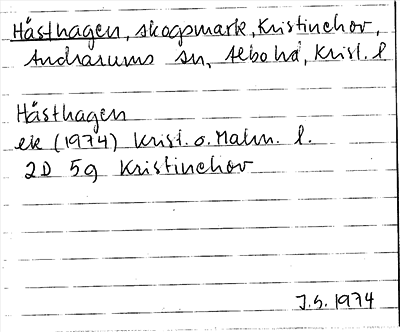 Hästhagen, skogsmark, Kristinehov,
Andrarums sn, Albo hd, Krist. l
Hästhagen
ek (1974) Krist. o. Malm. l.
2D 5g Kristinehov
J.S. 1974